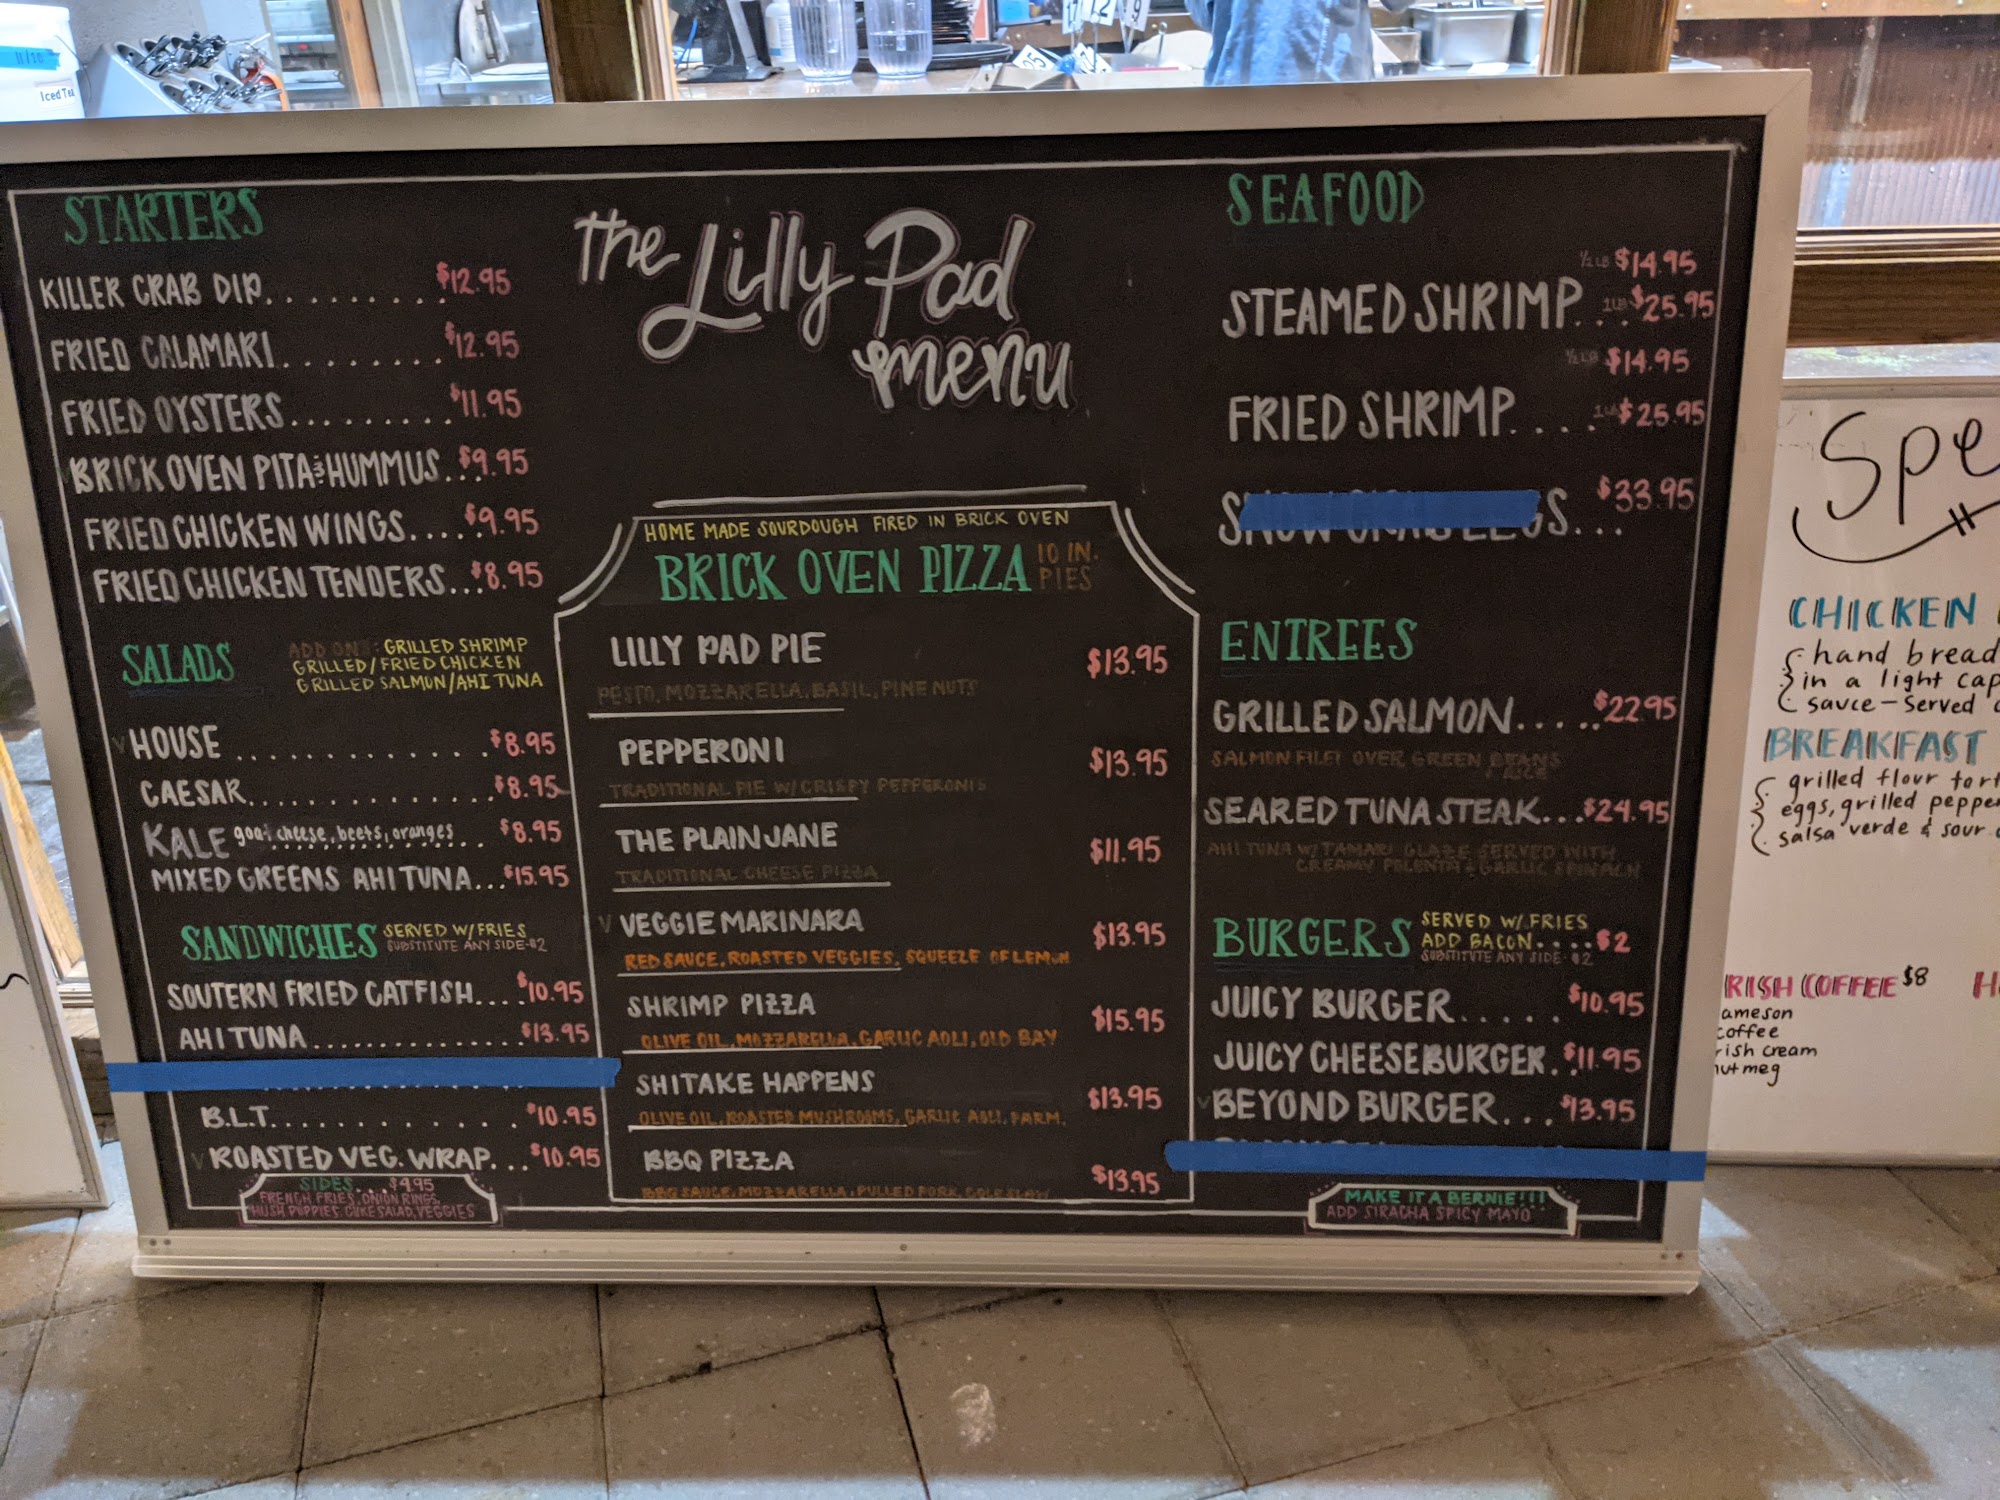 11/20
Iced Tea
17 12 9
the Lilly Pad
menu
STARTERS
KILLER CRAB DIP.......... $12.95
FRIED CALAMARI......... $12.95
FRIED OYSTERS......... $11.95
BRICK OVEN PITA & HUMMUS.. $9.95
FRIED CHICKEN WINGS..... $9.95
FRIED CHICKEN TENDERS... $8.95
SALADS
ADD ON: GRILLED SHRIMP
GRILLED/FRIED CHICKEN
GRILLED SALMON/AHI TUNA
V HOUSE ............. $8.95
CAESAR.............. $8.95
KALE goat cheese, beets, oranges $8.95
MIXED GREENS AHI TUNA... $15.95
SANDWICHES SERVED W/ FRIES
SUBSTITUTE ANY SIDE-$2
SOUTERN FRIED CATFISH.... $10.95
AHI TUNA.............. $13.95
B.L.T............. $10.95
V ROASTED VEG. WRAP... $10.95
SIDES... $4.95
FRENCH FRIES, ONION RINGS,
HUSH PUPPIES, CUKE SALAD, VEGGIES
HOME MADE SOURDOUGH FIRED IN BRICK OVEN
BRICK OVEN PIZZA 10 IN. PIES
LILLY PAD PIE $13.95
PESTO, MOZZARELLA, BASIL, PINE NUTS
PEPPERONI $13.95
TRADITIONAL PIE W/ CRISPY PEPPERONIS
THE PLAIN JANE $11.95
TRADITIONAL CHEESE PIZZA
V VEGGIE MARINARA $13.95
RED SAUCE, ROASTED VEGGIES, SQUEEZE OF LEMON
SHRIMP PIZZA $15.95
OLIVE OIL, MOZZARELLA, GARLIC AOLI, OLD BAY
SHITAKE HAPPENS $13.95
OLIVE OIL, ROASTED MUSHROOMS, GARLIC AOLI, PARM.
BBQ PIZZA $13.95
BBQ SAUCE, MOZZARELLA, PULLED PORK, COLESLAW
SEAFOOD
1/2 LB $14.95
STEAMED SHRIMP... 1 LB $25.95
1/2 LB $14.95
FRIED SHRIMP.... 1 LB $25.95
SNOW CRAB LEGS... $33.95
ENTREES
GRILLED SALMON..... $22.95
SALMON FILET OVER GREEN BEANS
& RICE
SEARED TUNA STEAK... $24.95
AHI TUNA W/ TAMARI GLAZE SERVED WITH
CREAMY POLENTA & GARLIC SPINACH
BURGERS SERVED W/ FRIES
ADD BACON.... $2
SUBSTITUTE ANY SIDE-$2
JUICY BURGER..... $10.95
JUICY CHEESEBURGER.. $11.95
V BEYOND BURGER... $13.95
MAKE IT A BERNIE!!!
ADD SIRACHA SPICY MAYO
Spe
CHICKEN
hand bread
in a light cap
sauce - served
BREAKFAST
grilled flour tort
eggs, grilled pepper
salsa verde & sour
RISH COFFEE $8 H
ameson
coffee
rish cream
nutmeg